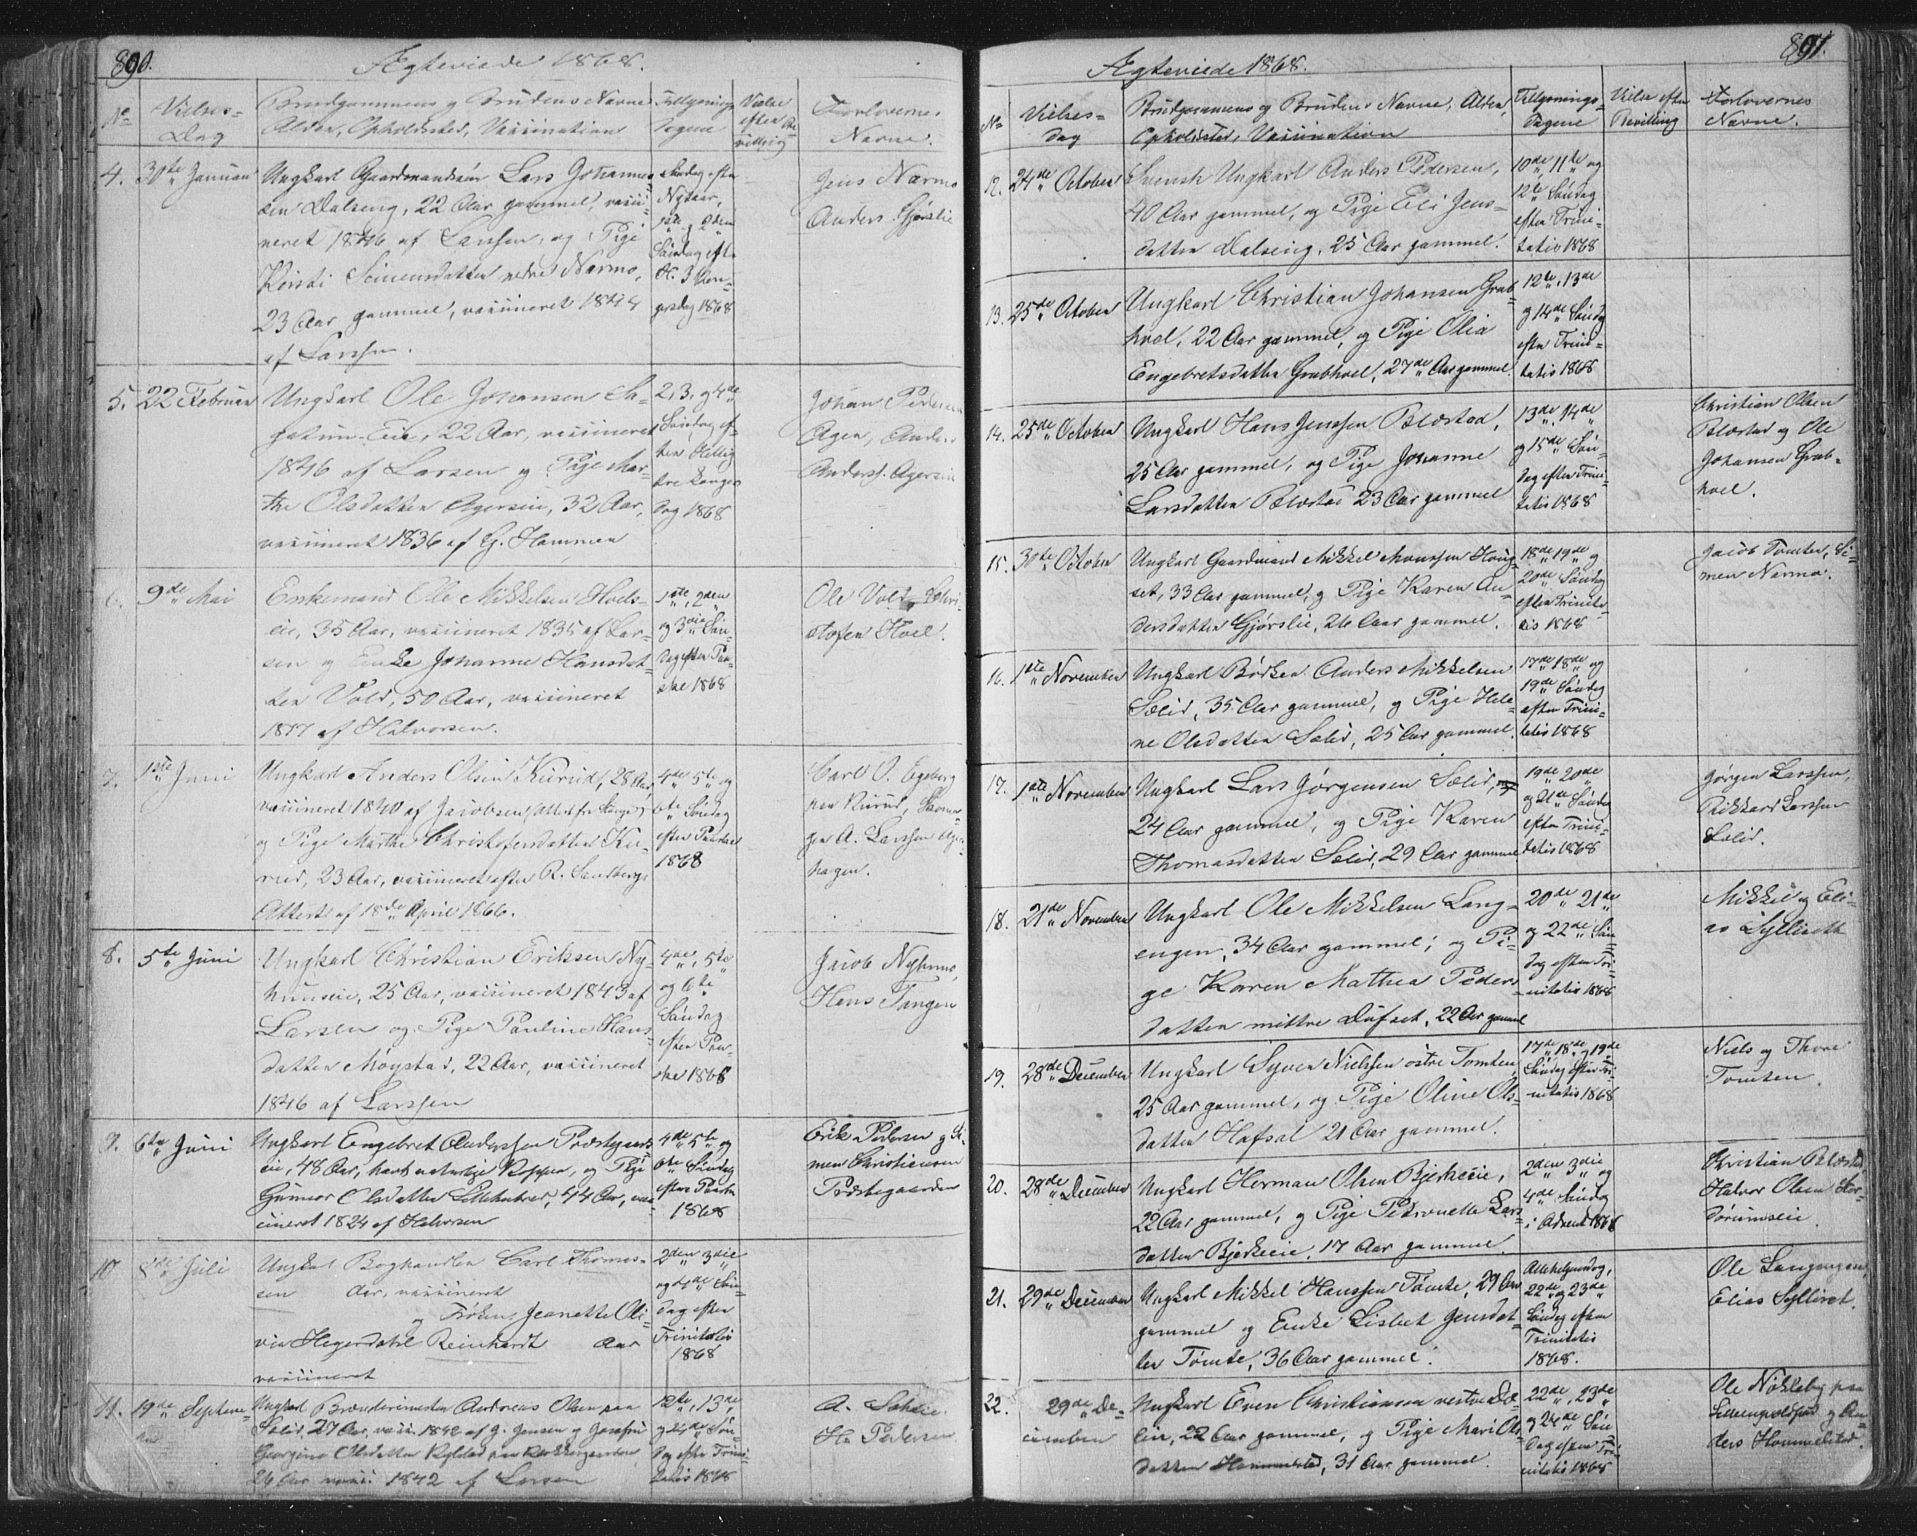 890.
Ægteviede 1868.
No
Vielses-
Dag
Brudgommens og Brudens Navne
Alder, Opholdssted, Vaccination
Tillysnings
Dagene
Vielse
efter Be
villing
Forlovernes
Navne.
4. 30te Januar
Ungkarl Gaardmandssøn Lars Johannes
sen Dalseng, 22 Aar gammel, vacci-
neret 1846 af Larssen, og Pige
Kersti Simensdatter nedre Narmo,
23 Aar gammel, vaccineret 1844
af Larssen.
Søndag efter
Nytaar,
1ste og 2den
Søndag efter
H. 3 Kon-
gersdag 1868
Jens Narmo
Anders Gjørslie
5. 22 Februar
Ungkarl Ole Johansen
22 Aar, vaccineret
1846 af Larsen og Pige Mar-
the Olsdatter Agerseie, 32 Aar,
vaccineret 1836 af G. Hammer
2, 3, og 4de
Søndag ef-
ter Hellig
tre Konges
Dag 1868
Johan Pedersen
Ager, Anders
Anders. Agerseie
6. 9de Mai
Enkemand Ole Mikkelsen Hoels-
eie, 35 Aar, vaccineret 1835 af Lar-
sen og Enke Johanne Hansdat-
ter Vold, 50 Aar, vaccineret
1817 af Halvorsen.
1ste, 2den
og 3die Søn-
dag efter Paa-
ske 1868
Ole Vold, Chri-
stofer Hoel.
7. 1ste Juni
Ungkarl Anders Olsen Kurud, 28 Aar,
vaccineret 1840 af Jacobsen (Attest fra Stange)
og Pige Marthe Christofersdatter Ku-
rud, 23 Aar, vaccineret efter R. Sandbergs
Attest af 18de April 1866.
4de 5te og
6te Søndag
efter Paaske
1868
Carl O. Egeberg
paa Kurud,
A. Larssen
hagen.
8. 5te Juni
Ungkarl Christian Eriksen Ny-
25 Aar, vaccineret 1843 af
Larsen og Pige Pauline Hans
datter Møystad, 22 Aar, vaccineret
1846 af Larssen
4de, 5te
og 6te
Søndag
efter Paa-
ske 1868
Jacob
Hans Tangen
9. 6te Juni
Ungkarl Engebret Anderssen Præstgaards
eie, 48 Aar, havt naturlige Kopper, og Pige
Gunnor Olsdatter 44 Aar, vac-
cineret 1824 af Halvorsen
4de 5te og
6te Søndag
efter Paaske
1868
Erik Pedersen og Si-
men Christiansen
Præstegaarden
10 Juli
Ungkarl Boghandler Carl Thomas-
sen Aar, vaccineret
og Frøken Jeanette Oli-
via Hegerdahl Reinhardt Aar
vaccineret
2den 3die
og 4de Søn-
dag efter
Trinitatis
1868
11. 19de Septem-
ber
Ungkarl Brænderimester Andreas Olsen paa
Sælid, 27 Aar, vacc. 1842 af J. Jensen og Jomfru
Georgine Olsdatter
26 Aar vacc. 1842 af Larsen
12te, 13de,
og 14de Søn-
dag efter Trini-
tatis 1868
A. Sælid
H. Pedersen
891.
Ægteviede 1868.
No
Vielses-
dag
Brudgommens og Brudens Navne, Alder,
Opholdssted, Vaccination
Tillysnings-
Dagene
Vielse efter
Bevilling
Forlovernes
Navne.
12. 24de October
Svensk Ungkarl Anders Pedersen,
40 Aar gammel, og Pige Eli Jens-
datter Dalseng, 25 Aar gammel.
10de 11te og
12te Søndag
efter Trini-
tatis 1868
13. 25de October
Ungkarl Christian Johansen Grub-
hoel, 22 Aar gammel, og Pige Olia
Engebretsdatter Grubhoel, 27de Aar gammel.
12te, 13de
og 14de Søndag
efter Trini-
tatis 1868
14. 25de October
Ungkarl Hans Jenssen Blæstad,
25 Aar gammel, og Pige Johanne
Larsdatter Blæstad 23 Aar gammel
13de, 14de
og 15de Søn-
dag efter Trini-
tatis 1868
Christian Olsen
Blæstad og Ole
Johansen Grub-
hoel.
15. 30te October
Ungkarl Gaardmand Mikkel Monssen Houg-
set, 33 Aar gammel, og Pige Karen An-
dersdatter Gjørslie, 26 Aar gammel.
18de 19de og
20de Søndag
efter Trinita-
tis 1868
Jacob Tomter, Si-
men Narmo.
16. 1ste November
Ungkarl Bødker Anders Mikkelsen
Sælid, 35 Aar gammel, og Pige Hele-
ne Olsdatter Sælid, 25 Aar gammel
17de 18de og
19de Søndag
efter Trini-
tatis 1868
17. 1ste November
Ungkarl Lars Jørgensen Sælid,
24 Aar gammel, og Pige Karen
Thomasdatter Sælid, 29 Aar gammel
19de 20de
og 21de Søndag
efter Trini-
tatis 1868
Jørgen Larssen,
Rikkard Larssen
Sælid.
18. 21de November
Ungkarl Ole Mikkelsen Lang-
engen, 34 Aar gammel; og Pi-
ge Karen Mathea Peders-
datter mittre Dufset, 22 Aar gammel
20de 21de
og 22de Søn-
dag efter Tri-
nitatis 1868
Mikkel og Eli-
as Sylliseth
19. 28de December
Ungkarl Syver Nielssen østre Tomter,
25 Aar gammel, og Pige Oline Ols-
datter Hafsal 21 Aar gammel.
17de 18de og 19de
Søndag efter Tri-
nitatis 1868
Niels og Thore
Tomter.
20. 28de December
Ungkarl Herman Olsen Bjerkeeie,
22 Aar gammel, og Pige Pedronelle Lars-
datter Bjerkeeie, 17 Aar gammel.
2den 3die og
4de Søndag
i Advent 1868
Christian Blæstad
Halvor Olsen Stor-
dørumseie
21. 29de December
Ungkarl Mikkel Hanssen Tømte, 29 Aar
gammel og Enke Lisbet Jensdat-
ter Tømte, 36 Aar gammel.
Allehelgensdag,
22de og 23de
Søndag efter
Trinitatis
1868.
Ole Langengen,
Elias Sylliset.
22. 29de De-
cember
Ungkarl Even Christiansen vestre
eie, 22 Aar gammel, og Pige Mari Ols-
datter Hommelstad, 31 Aar gammel.
22de, 23de
og 24de Søn-
dag efter Tri-
nitatis 1868
Ole Nøkleby paa
og An-
ders Hommelstad.